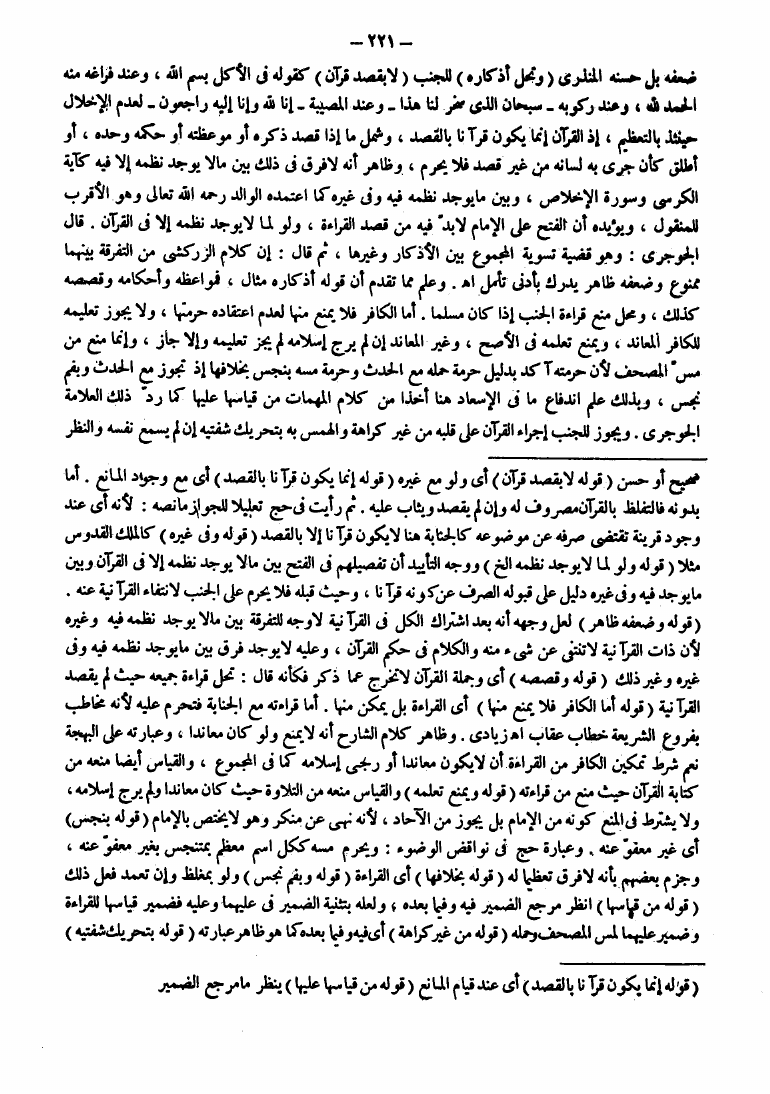 – ٢٢١ –
ضعفه بل حسنه المنذرى (وتحل أذكاره) للجنب (لابقصد قرآن) كقوله فى الأكل بسم الله ، وعند فراغه منه
الحمد لله ، وعند ركوبه ـ سبحان الذى سخر لنا هذا ـ وعند المصيبة ـ إنا لله وإنا إليه راجعون ـ لعدم الإخلال
حينئذ بالتعظيم ، إذ القرآن إنما يكون قرآنا بالقصد ، وشمل ما إذا قصد ذكره أو موعظته أو حكمه وحده ، أو
أطلق كأن جرى به لسانه من غير قصد فلا يحرم ، وظاهر أنه لافرق فى ذلك بين مالا يوجد نظمه إلا فيه كآية
الكرسى وسورة الإخلاص ، وبين مايوجد نظمه فيه وفى غيره كما اعتمده الوالد رحمه الله تعالى وهو الأقرب
للمنقول ، ويؤيده أن الفتح على الإمام لابدّ فيه من قصد القراءة ، ولو لما لايوجد نظمه إلا فى القرآن . قال
الجوجرى : وهو قضية تسوية المجموع بين الأذكار وغيرها ، ثم قال : إن كلام الزركشى من التفرقة بينهما
ممنوع وضعفه ظاهر يدرك بأدنى تأمل اهـ . وعلم مما تقدم أن قوله أذكاره مثال ، فمواعظه وأحكامه وقصصه
كذلك ، ومحل منع قراءة الجنب إذا كان مسلما . أما الكافر فلا يمنع منها لعدم اعتقاده حرمتها ، ولا يجوز تعليمه
للكافر المعاند ، ويمنع تعلمه فى الأصح ، وغير المعاند إن لم يرج إسلامه لم يجز تعليمه وإلا جاز ، وإنما منع من
مسّ المصحف لأن حرمته آكد بدليل حرمة حمله مع الحدث وحرمة مسه بنجس بخلافها إذ تجوز مع الحدث وبفم
نجس ، وبذلك علم اندفاع ما فى الإسعاد هنا أخذا من كلام المهمات من قياسها عليها كما ردّ ذلك العلامة
الجوجرى . ويجوز للجنب إجراء القرآن على قلبه من غير كراهة والهمس به بتحريك شفتيه إن لم يسمع نفسه والنظر
صحيح أو حسن (قوله لابقصد قرآن) أى ولو مع غيره (قوله إنما يكون قرآنا بالقصد) أى مع وجود المانع . أما
بدونه فالتلفظ بالقرآن مصروف له وإن لم يقصد ويثاب عليه . ثم رأيت فى حج تعليلا للجواز مانصه : لأنه أى عند
وجود قرينة تقتضى صرفه عن موضوعه كالجنابة هنا لايكون قرآنا إلا بالقصد (قوله وفى غيره) كالملك القدوس
مثلا (قوله ولو لما لايوجد نظمه الخ) ووجه التأييد أن تفصيلهم فى الفتح بين مالا يوجد نظمه إلا فى القرآن وبين
مايوجد فيه وفى غيره دليل على قبوله الصرف عن كونه قرآنا ، وحيث قبله فلا يحرم على الجنب لانتفاء القرآنية عنه .
(قوله وضعفه ظاهر) لعل وجهه أنه بعد اشتراك الكل فى القرآنية لاوجه للتفرقة بين مالا يوجد نظمه فيه وغيره
لأن ذات القرآنية لاتنتفى عن شىء منه والكلام فى حكم القرآن ، وعليه لايوجد فرق بين مايوجد نظمه فيه وفى
غيره وغير ذلك (قوله وقصصه) أى وجملة القرآن لاتخرج عما ذكر فكأنه قال : تحل قراءة جميعه حيث لم يقصد
القرآنية (قوله أما الكافر فلا يمنع منها) أى القراءة بل يمكن منها . أما قراءته مع الجنابة فتحرم عليه لأنه مخاطب
بفروع الشريعة خطاب عقاب اهـ زيادى . وظاهر كلام الشارح أنه لايمنع ولو كان معاندا ، وعبارته على البهجة
نعم شرط تمكين الكافر من القراءة أن لايكون معاندا أو رجى إسلامه كما فى المجموع ، والقياس أيضا منعه من
كتابة القرآن حيث منع من قراءته (قوله ويمنع تعلمه) والقياس منعه من التلاوة حيث كان معاندا ولم يرج إسلامه ،
ولا يشترط فى المنع كونه من الإمام بل يجوز من الآحاد ، لأنه نهى عن منكر وهو لايختص بالإمام (قوله بنجس)
أى غير معفوّ عنه . وعبارة حج فى نواقض الوضوء : ويحرم مسه ككل اسم معظم بمتنجس بغير معفوّ عنه ،
وجزم بعضهم بأنه لافرق تعظيما له (قوله بخلافها) أى القراءة (قوله وبفم نجس) ولو بمغلظ وإن تعمد فعل ذلك
(قوله من قياسها) انظر مرجع الضمير فيه وفيما بعده ، ولعله بتثنية الضمير فى عليهما وعليه فضمير قياسها للقراءة
وضمير عليهما لمس المصحف وحمله (قوله من غير كراهة) أى فيه وفيما بعده كما هو ظاهر عبارته (قوله بتحريك شفتيه)
(قوله إنما يكون قرآنا بالقصد) أى عند قيام المانع (قوله من قياسها عليها) ينظر مامرجع الضمير